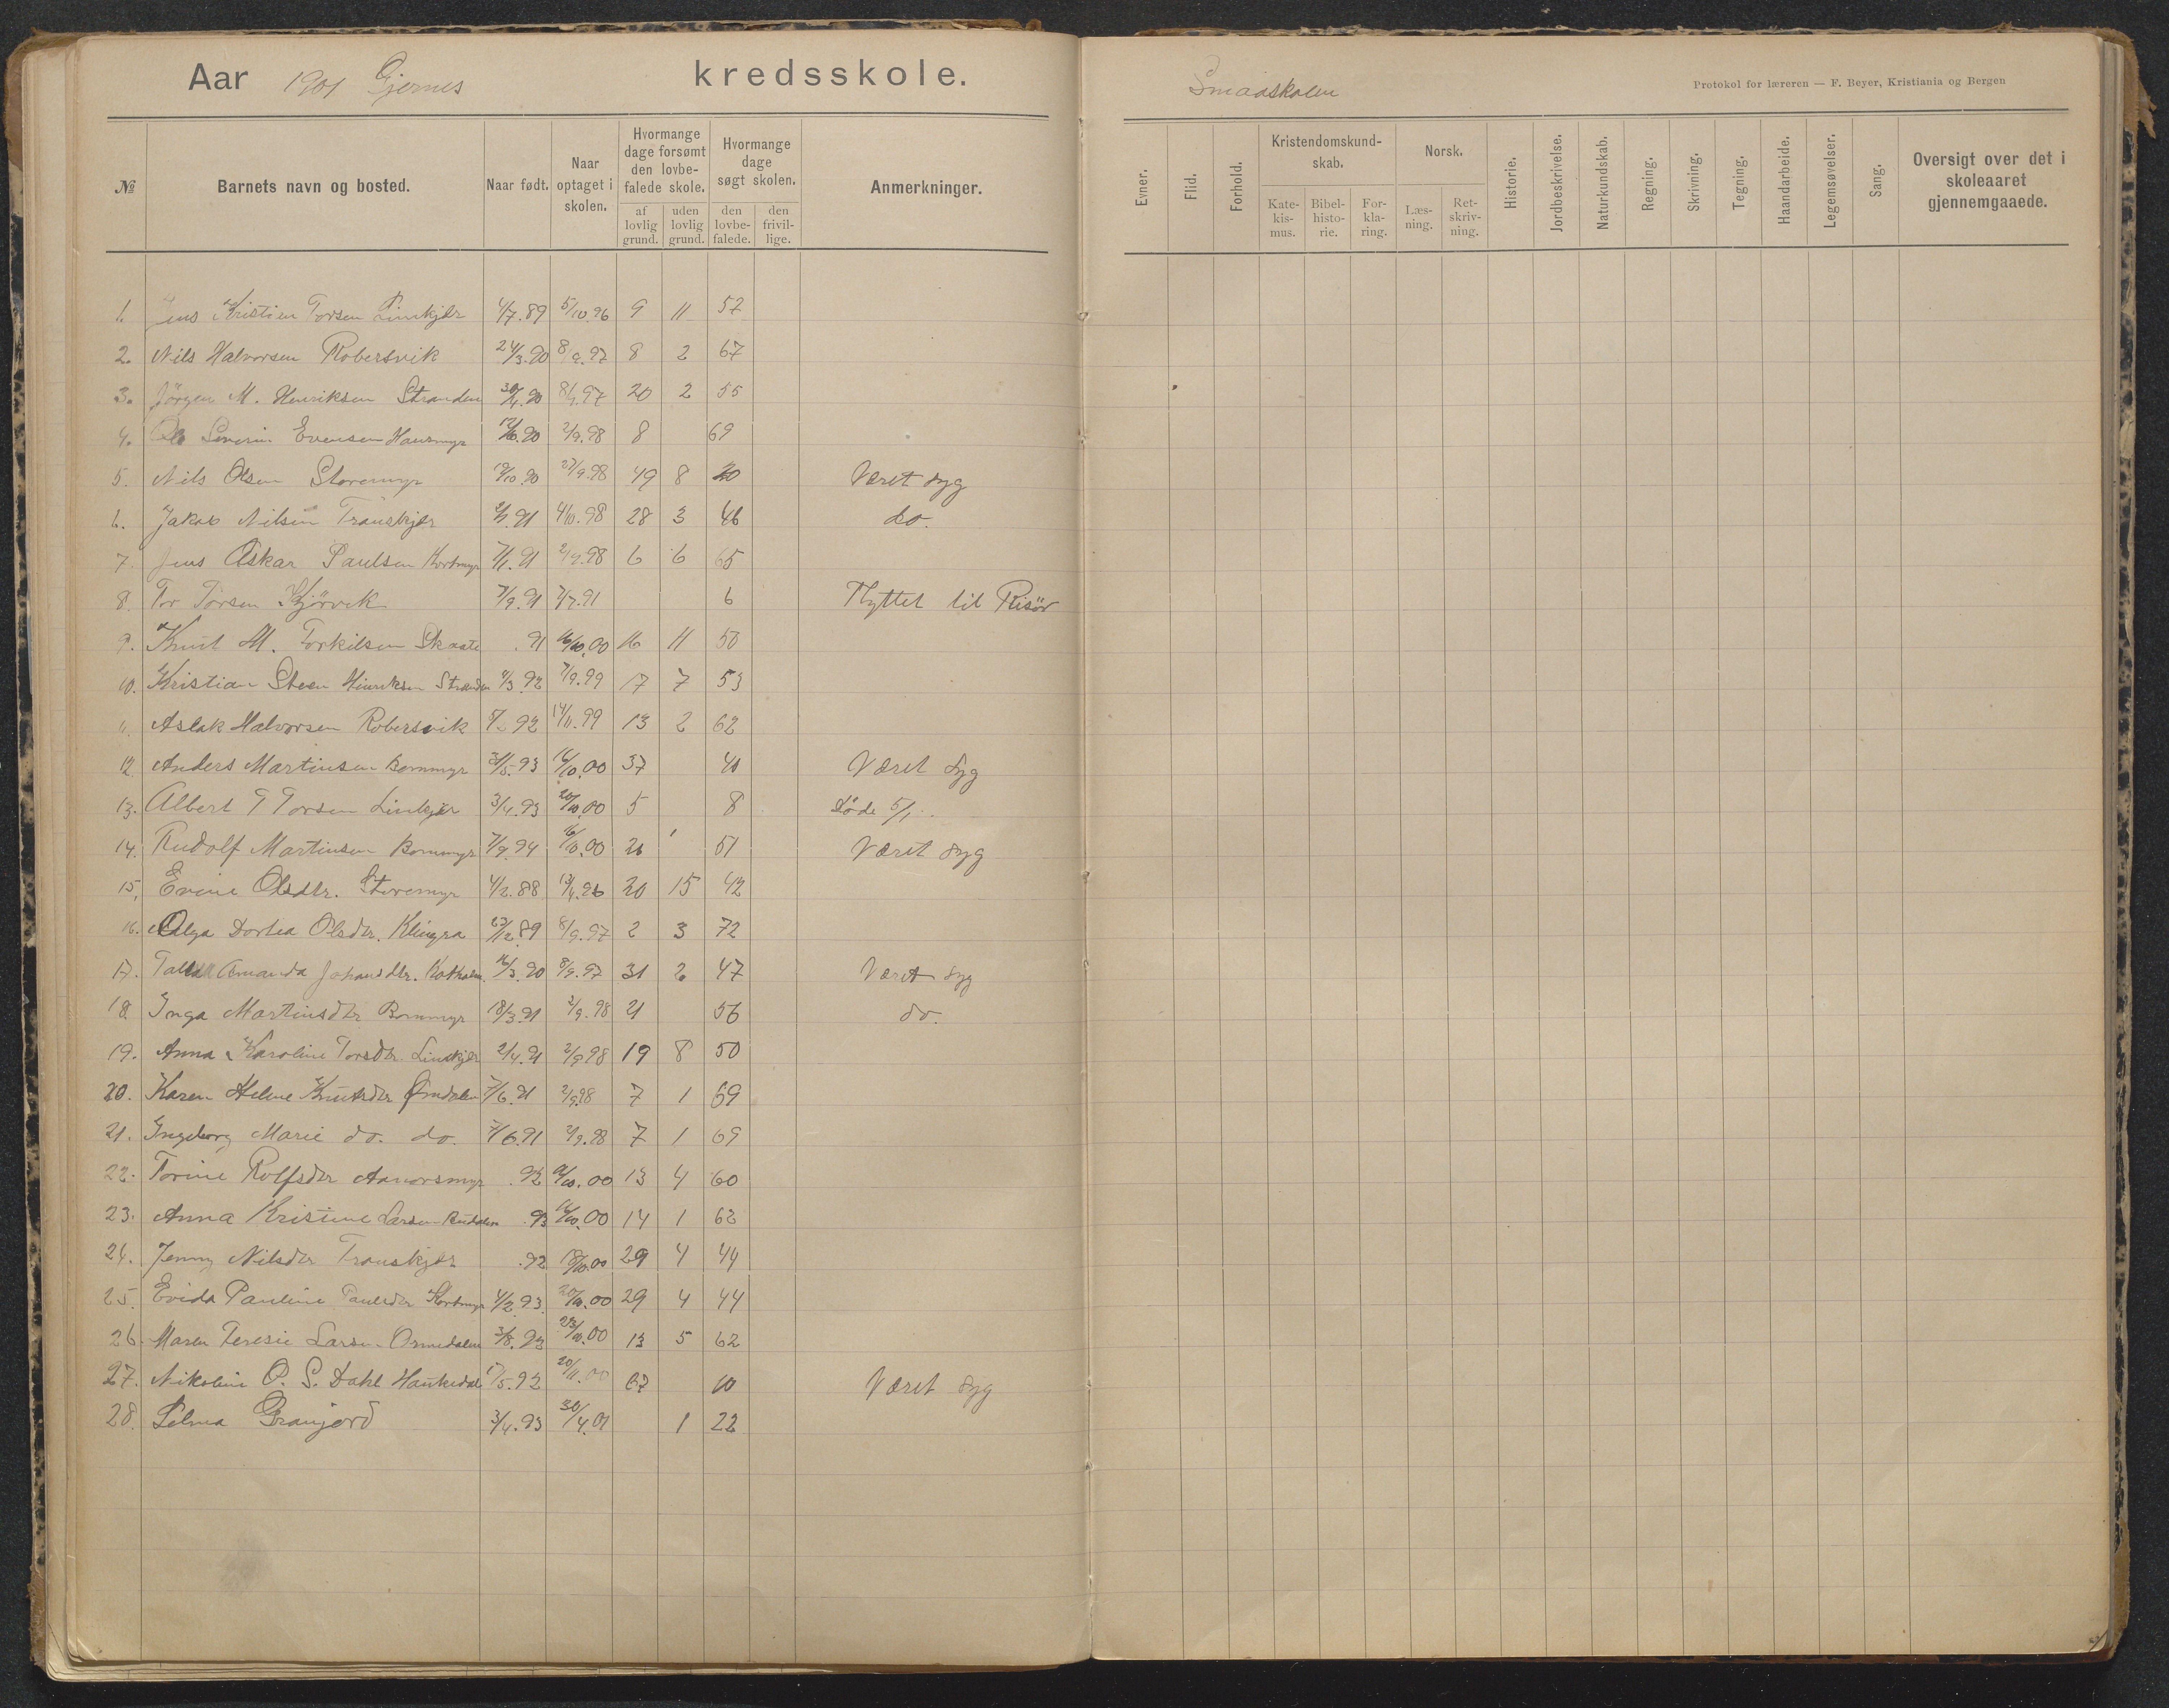 Aar 1901 Gjernes kredsskole.
Smaaskolen
Protokol for læreren — F. Beyer, Kristiania og Bergen
№ Barnets navn og bosted. Naar født. Naar optaget i skolen. Hvormange dage forsømt den lovbefalede skole. af lovlig grund. uden lovlig grund. Hvormange dage søgt skolen. den lovbefalede. den frivillige. Anmerkninger.
Evner. Flid. Forhold. Kristendomskundskab. Katekismus. Bibelhistorie. Forklaring. Norsk. Læsning. Retskrivning. Historie. Jordbeskrivelse. Naturkundskab. Regning. Skrivning. Tegning. Haandarbeide. Legemsøvelser. Sang. Oversigt over det i skoleaaret gjennemgaaede.
1. Jens Kristian Torsen Linkjær 4/7.89 5/10.96 9 11 52
2. Nils Halvorsen Robersvik 24/3.90 8/9.97 8 2 67
3. Jörgen M. Henriksen Stranden 30/4.90 8/9.97 20 2 55
4. Ole Severin Evensen 2/9.98 8 69
5. Nils Olsen Storemyr 19/10.90 27/9.98 49 8 Været syg
6. Jakob Nilsen Transkjær 4/10.98 28 3 46 do.
7. Jens Oskar Paulsen Kortmyr 7/1.91 2/9.98 6 6 65
8. Tor Torsen Kjörvik 7/9.91 6 Flyttet til Risör
9. Knut M. Torkilsen Skaate .91 16/10.00 16 11 50
10. Kristian Steen Henriksen Stranden 4/3.92 7/9.99 17 7 53
11. Aslak Halvorsen Robersvik 92 14/11.99 13 2 62
12. Anders Martinsen Bommyr 31/5.93 16/10.00 37 40 Været syg
13. Albert T Torsen Linkjær 3/4.93 20/10.00 5 8 Døde 5/1.
14. Rudolf Martinsen Bommyr 7/9.94 16/10.00 26 51 Været syg
15. Evine Olsdtr. Storemyr 4/2.88 13/4.96 20 15 42
16. Olga Dortea Olsdtr. Klingra 23/12.89 8/9.97 2 3 72
17. Amanda Johansdtr. 16/3.90 8/9.97 31 2 47 Været syg
18. Inga Martinsdtr Bommyr 18/3.91 2/9.98 21 56 do.
19. Anna Karoline Torsdtr. Linkjær 2/4.91 2/9.98 19 8 50
20. Karen Helene Knutsdtr Ørmdalen 7/6.91 2/9.98 7 1 69
21. Ingeborg Marie do. do. 7/6.91 2/9.98 7 1 69
22. Torine Rolfsdtr Aanorsmyr .92 00 13 4 60
23. Anna Kristine Larsen .93 16/10.00 14 1 62
24. Jenny Nilsdtr Transkjær .92 18/10.00 29 4 44
25. Evida Pauline Paulsdtr Kortmyr 4/2.93. 20/10.00 29 4 44
26. Maren Teresie Larsen Ormdalen 3/8.93 23/10.00 13 5 62
27. Nikoline O. S. Dahl Haukedal 17/5.92 20/11.00 67 10 Været syg
28. Selma Granjord 3/4.93 30/4.01 1 22